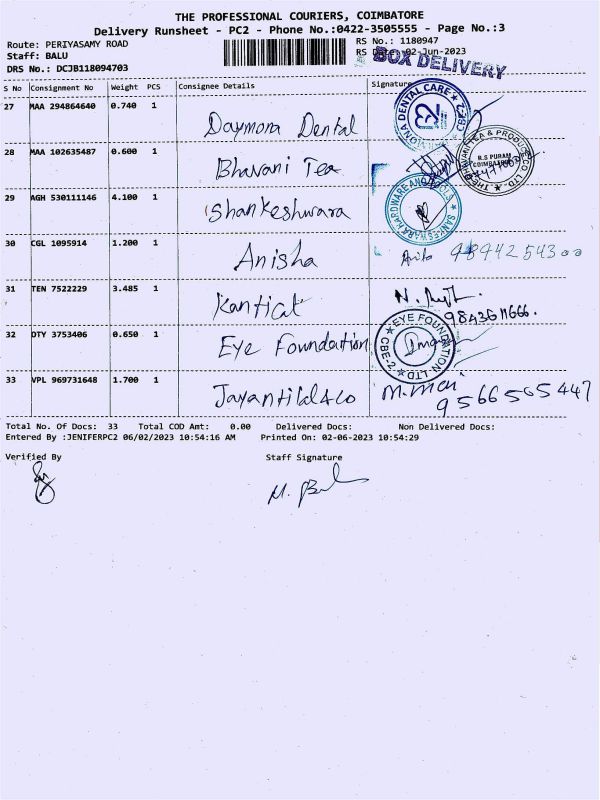 THE PROFESSIONAL COURIERS, COIMBATORE
Delivery Runsheet - PC2 - Phone No.:0422-3505555 - Page No.:3
Route: PERIYASAMY ROAD
RS No.: 1180947
Staff: BALU
RS Date: 02-Jun-2023
BOX DELIVERY
DRS No.: DCJB118094703
S No Consignment No Weight PCS Consignee Details Signature
27 MAA 294864640 0.740 1 Daymona Dental
28 MAA 102635487 0.600 1 Bhavani Tea
R.S PURAM
COIMBATORE
29 AGH 530111146 4.100 1 Shankeshwara
30 CGL 1095914 1.200 1 Anisha 9894254300
31 TEN 7522229 3.485 1
32 DTY 3753406 0.650 1 Eye Foundation
EYE FOUNDATION LTD CBE-2
33 VPL 969731648 1.700 1 Jayantilal & co M.Mani
9566505447
Total No. Of Docs: 33 Total COD Amt: 0.00 Delivered Docs: Non Delivered Docs:
Entered By :JENIFERPC2 06/02/2023 10:54:16 AM Printed On: 02-06-2023 10:54:29
Verified By Staff Signature